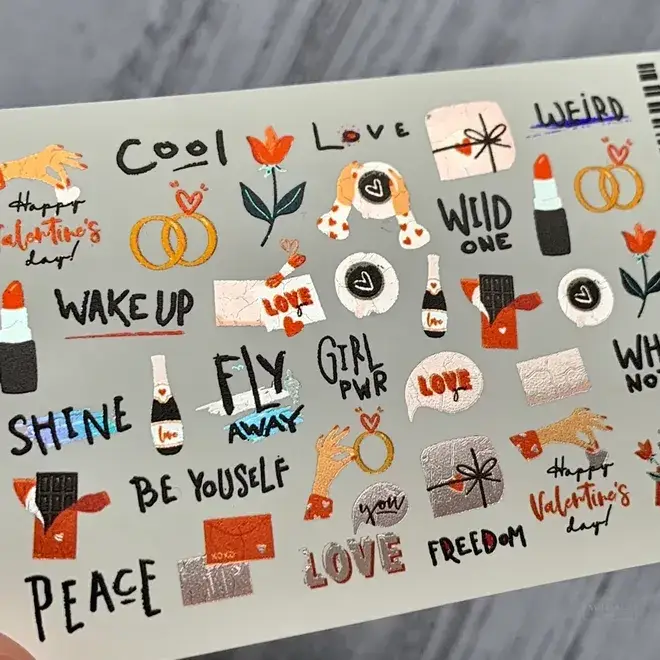 Cool
LOVE
WEiRD
Happy
Valentine's
day!
WILD
ONE
WAKE UP
LOVE
love
FLY
AWAY
GIRL
PWR
LOVE
WH
NO
SHINE
love
BE YOUSELF
you
Happy
Valentine's
day!
XOXO
LOVE
FREEDOM
PEACE